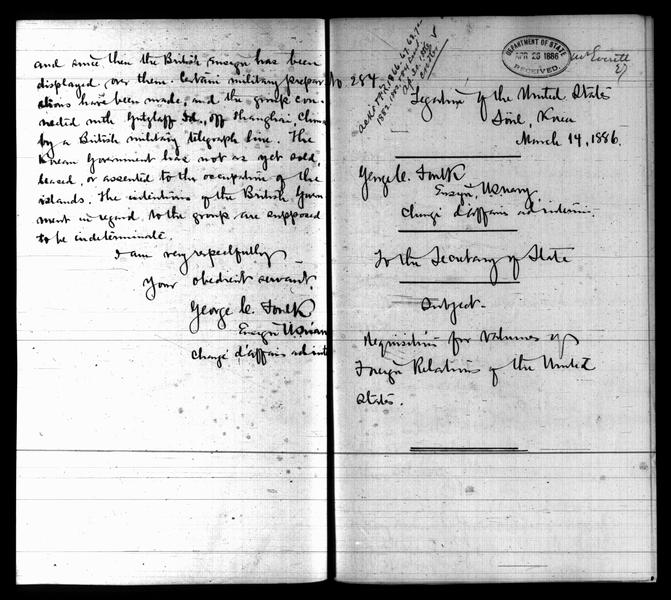 and since then the British Ensign has been
displayed over them. Certain military prepar
ations have been made, and the group con-
nected with Gutzlaff Id., off Shanghai, China
by a British military telegraph line. The
Korean Government has not as yet sold,
leased, or assented to the occupation of the
islands. The intentions of the British Govern
ment in regard to the group are supposed
to be indeterminate
I am very respectfully
Your obedient servant,
George C. Foulk
Ensign U.S. Navy
Chargé d'affaires ad int
No. 284
DEPARTMENT OF STATE
APR 26 1886
RECEIVED
Everett
Legation of the United States
Söul, Korea
March 14, 1886.
George C. Foulk
Ensign, U.S. Navy,
Chargé d'affaires ad interim.
To the Secretary of State
Subject.
Requisition for Volumes of
Foreign Relations of the United
States.